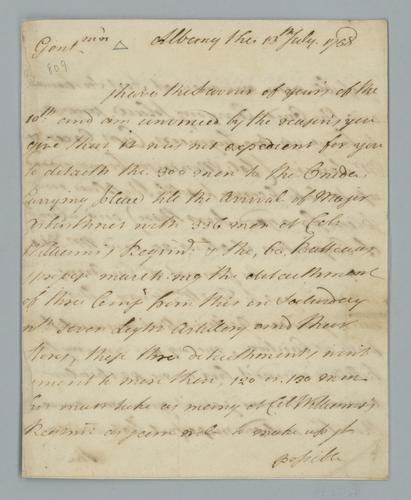 Gent.mn
Albany the 13th July. 1758
809
I have the favour of yours of the
10th and am convinced by the reasons you
give that it was not expedient for you
to detach the 300 men to the Oneida
Carrying place till the arrival of Major
with 336 men of Col:
Williams's Regimt. & the
march the detachment
of three Comp.s from this on Saturday
with seven light Artillery and their
Stores, these three detachments
amount to more than 120 or 130 men
must take as many of Col. Williams's
Regimt. as you to make up
possible